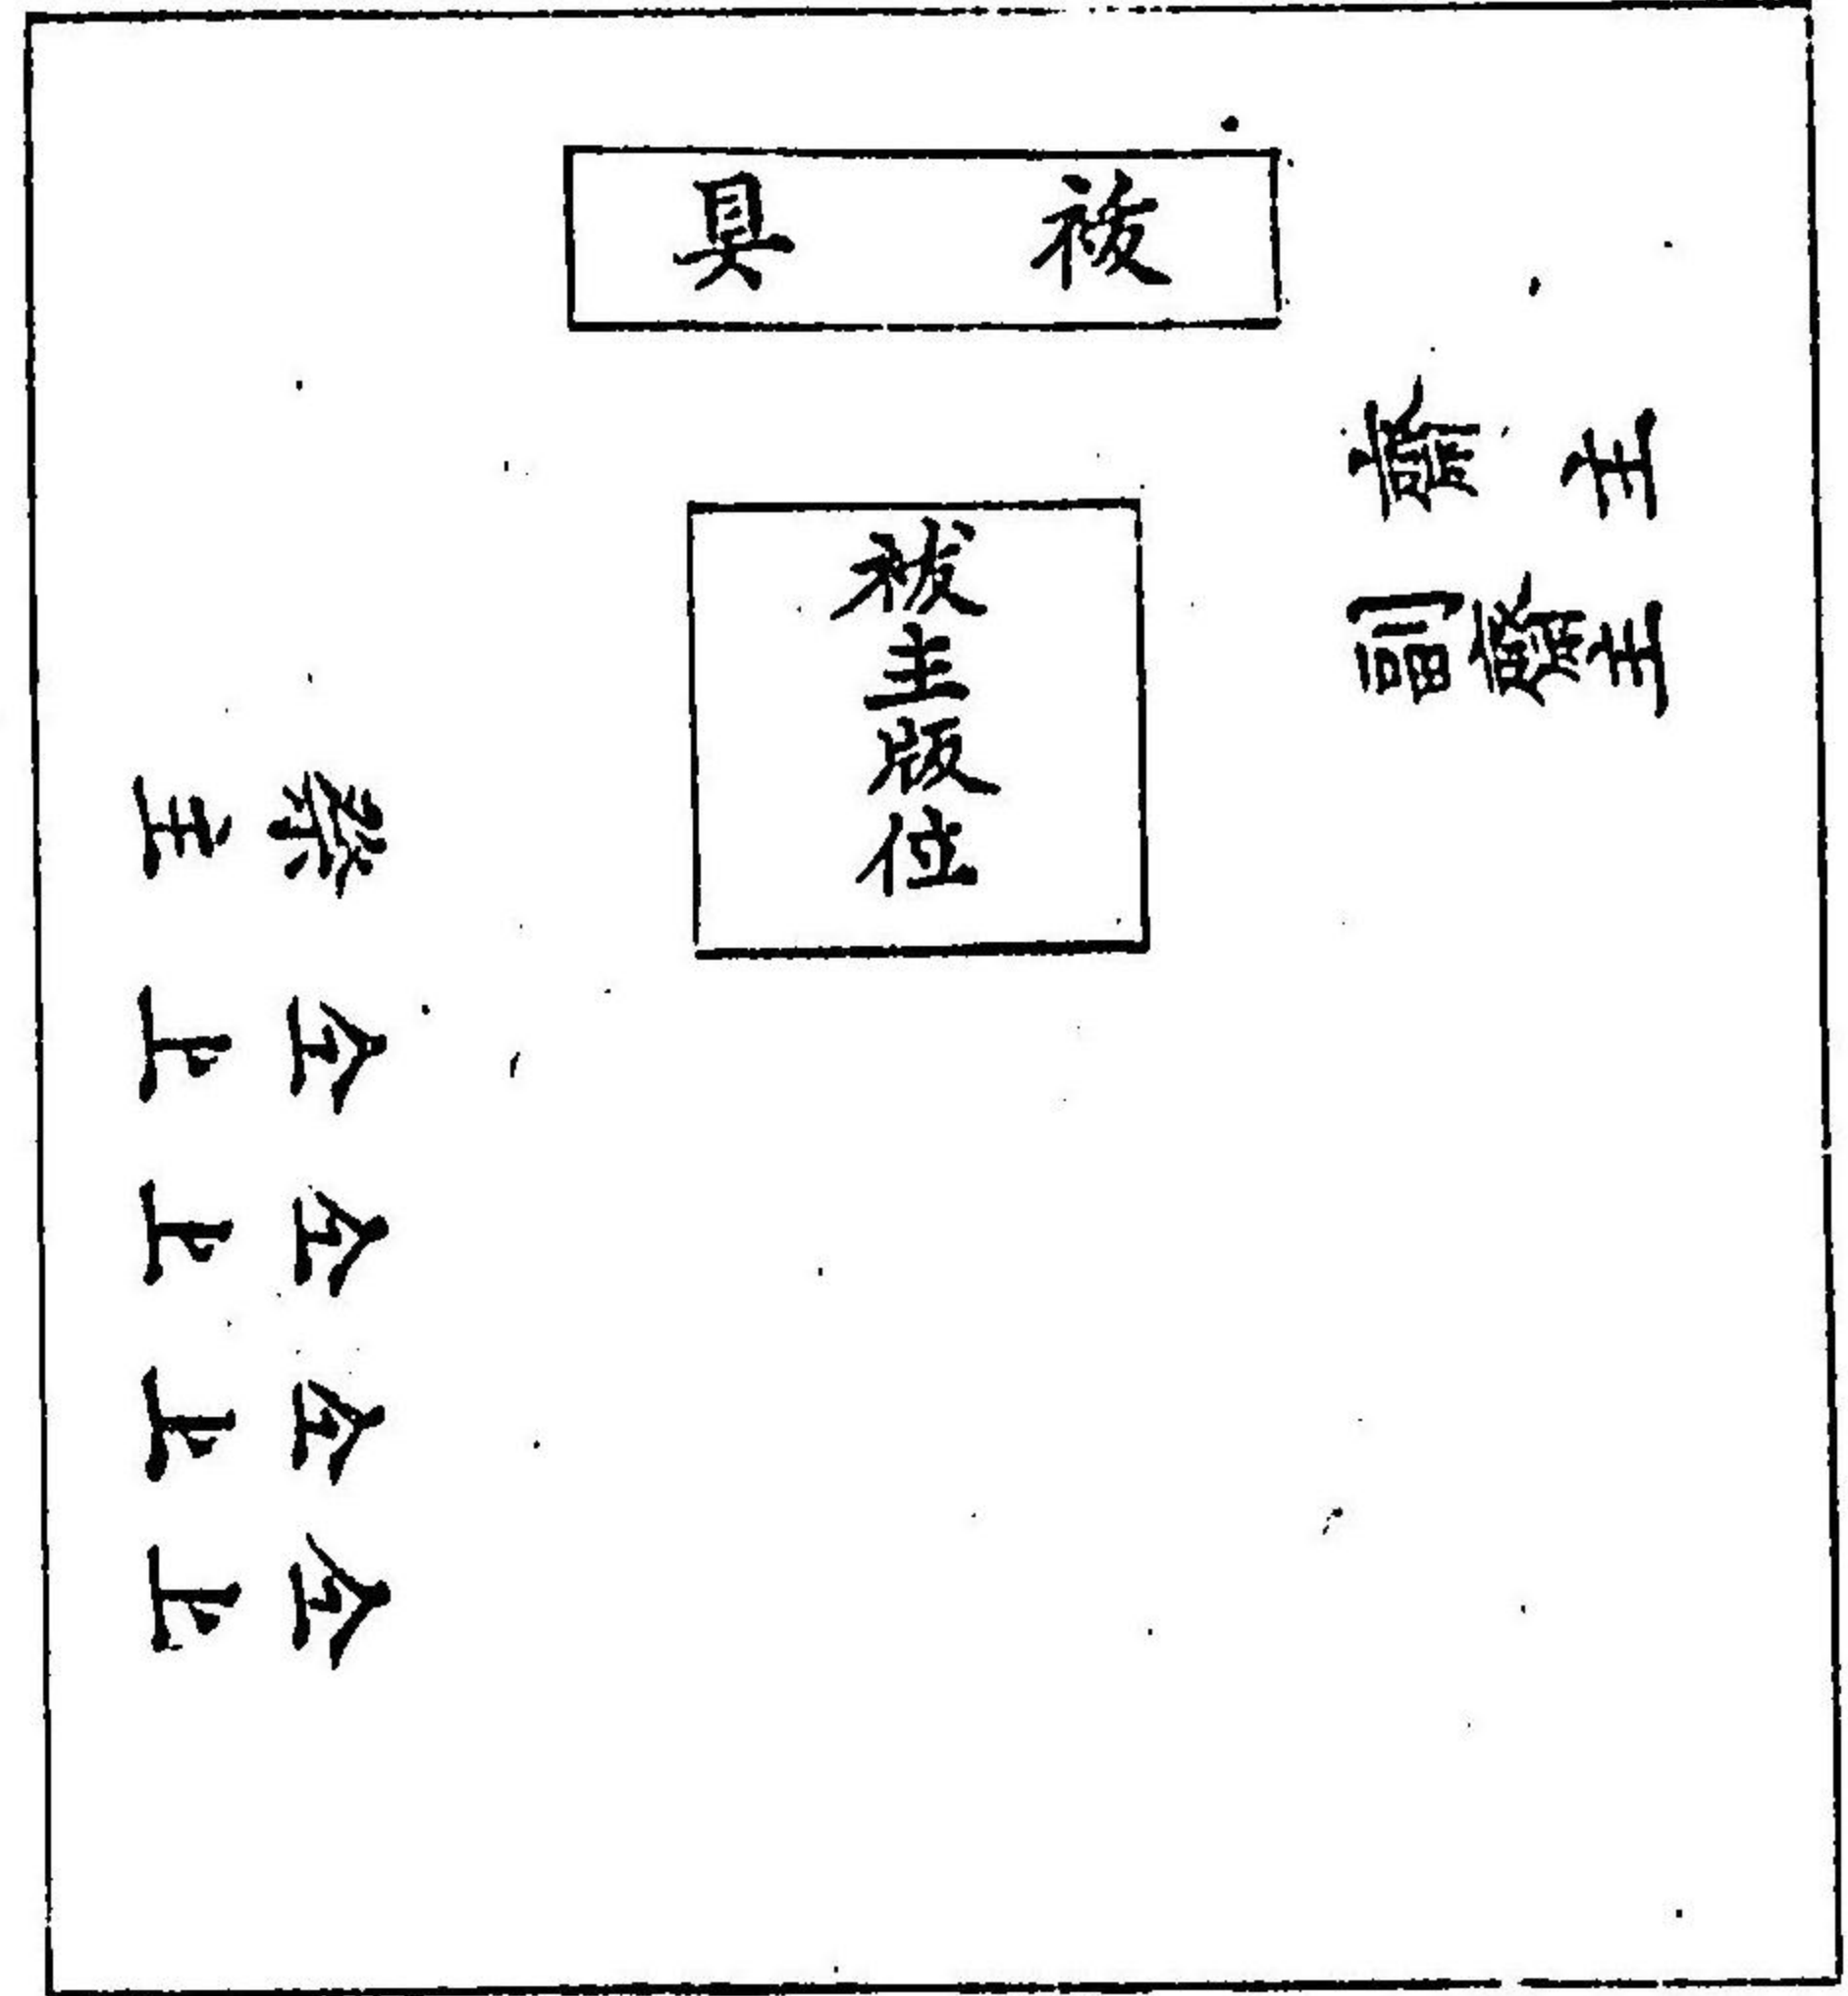 祓具
祓主版位
齋主
副齋主
祭主
仝上
仝上
仝上
仝上